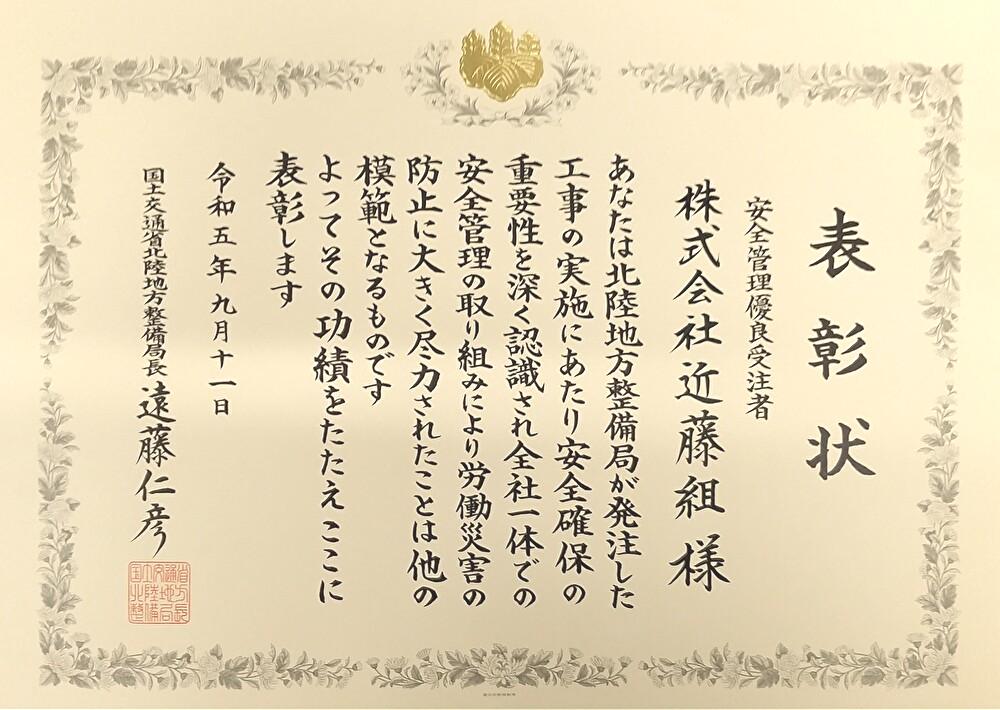 表彰状
安全管理優良受注者
株式会社近藤組様
あなたは北陸地方整備局が発注した
工事の実施にあたり安全確保の
重要性を深く認識され全社一体での
安全管理の取り組みにより労働災害の
防止に大きく尽力されたことは他の
模範となるものです
よってその功績をたたえここに
表彰します
令和五年九月十一日
国土交通省北陸地方整備局長 遠藤仁彦